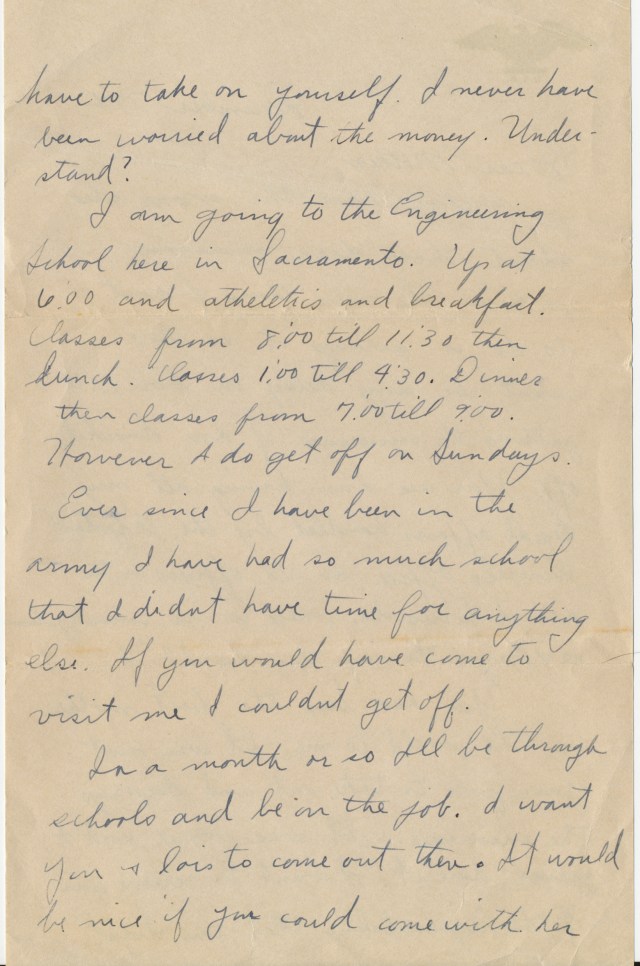 have to take on yourself. I never have
been worried about the money. Under-
stand?
I am going to the Engineering
School here in Sacramento. Up at
6:00 and atheletics and breakfast.
Classes from 8:00 till 11:30 then
lunch. Classes 1:00 till 4:30. Dinner
then classes from 7:00 till 9:00.
However I do get off on Sundays.
Ever since I have been in the
army I have had so much school
that I didnt have time for anything
else. If you would have come to
visit me I couldnt get off.
In a month or so I'll be through
schools and be on the job. I want
you & Lois to come out then. It would
be nice if you could come with her